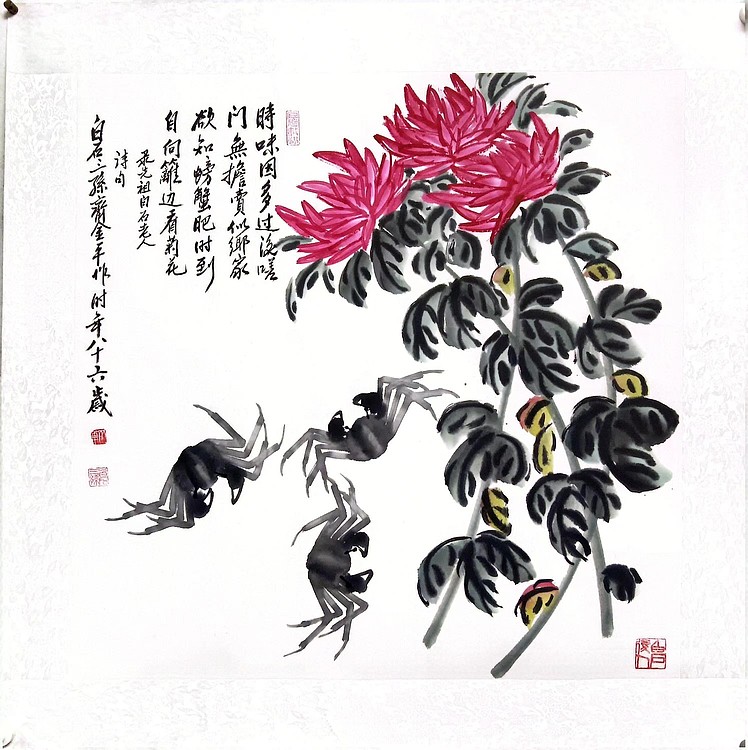 時味因多过後嗟
门無擔賣似鄉家
欲知螃蟹肥时到
自向籬边看菊花
录先祖白石老人
诗句
白石之孫齊金平作时年八十六歲
白石後人